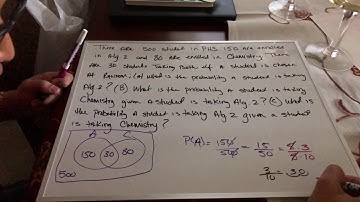 There are 500 student in PHS 150 are enrolled
in Alg 2 and 80 are enrolled in Chemistry. There
are 30 students taking Both. If a student is chosen
At Random, (a) What is the probability a student is taking
Alg 2? (B) What is the probability a student is taking
Chemistry given a student is taking Alg 2? (C) What is
the Probability a student is taking Alg 2 given a student
is taking Chemistry?
C
150 30 80
500
P(A) = 150/500 = 15/50 = 5·3/5·10
3/10 = 30